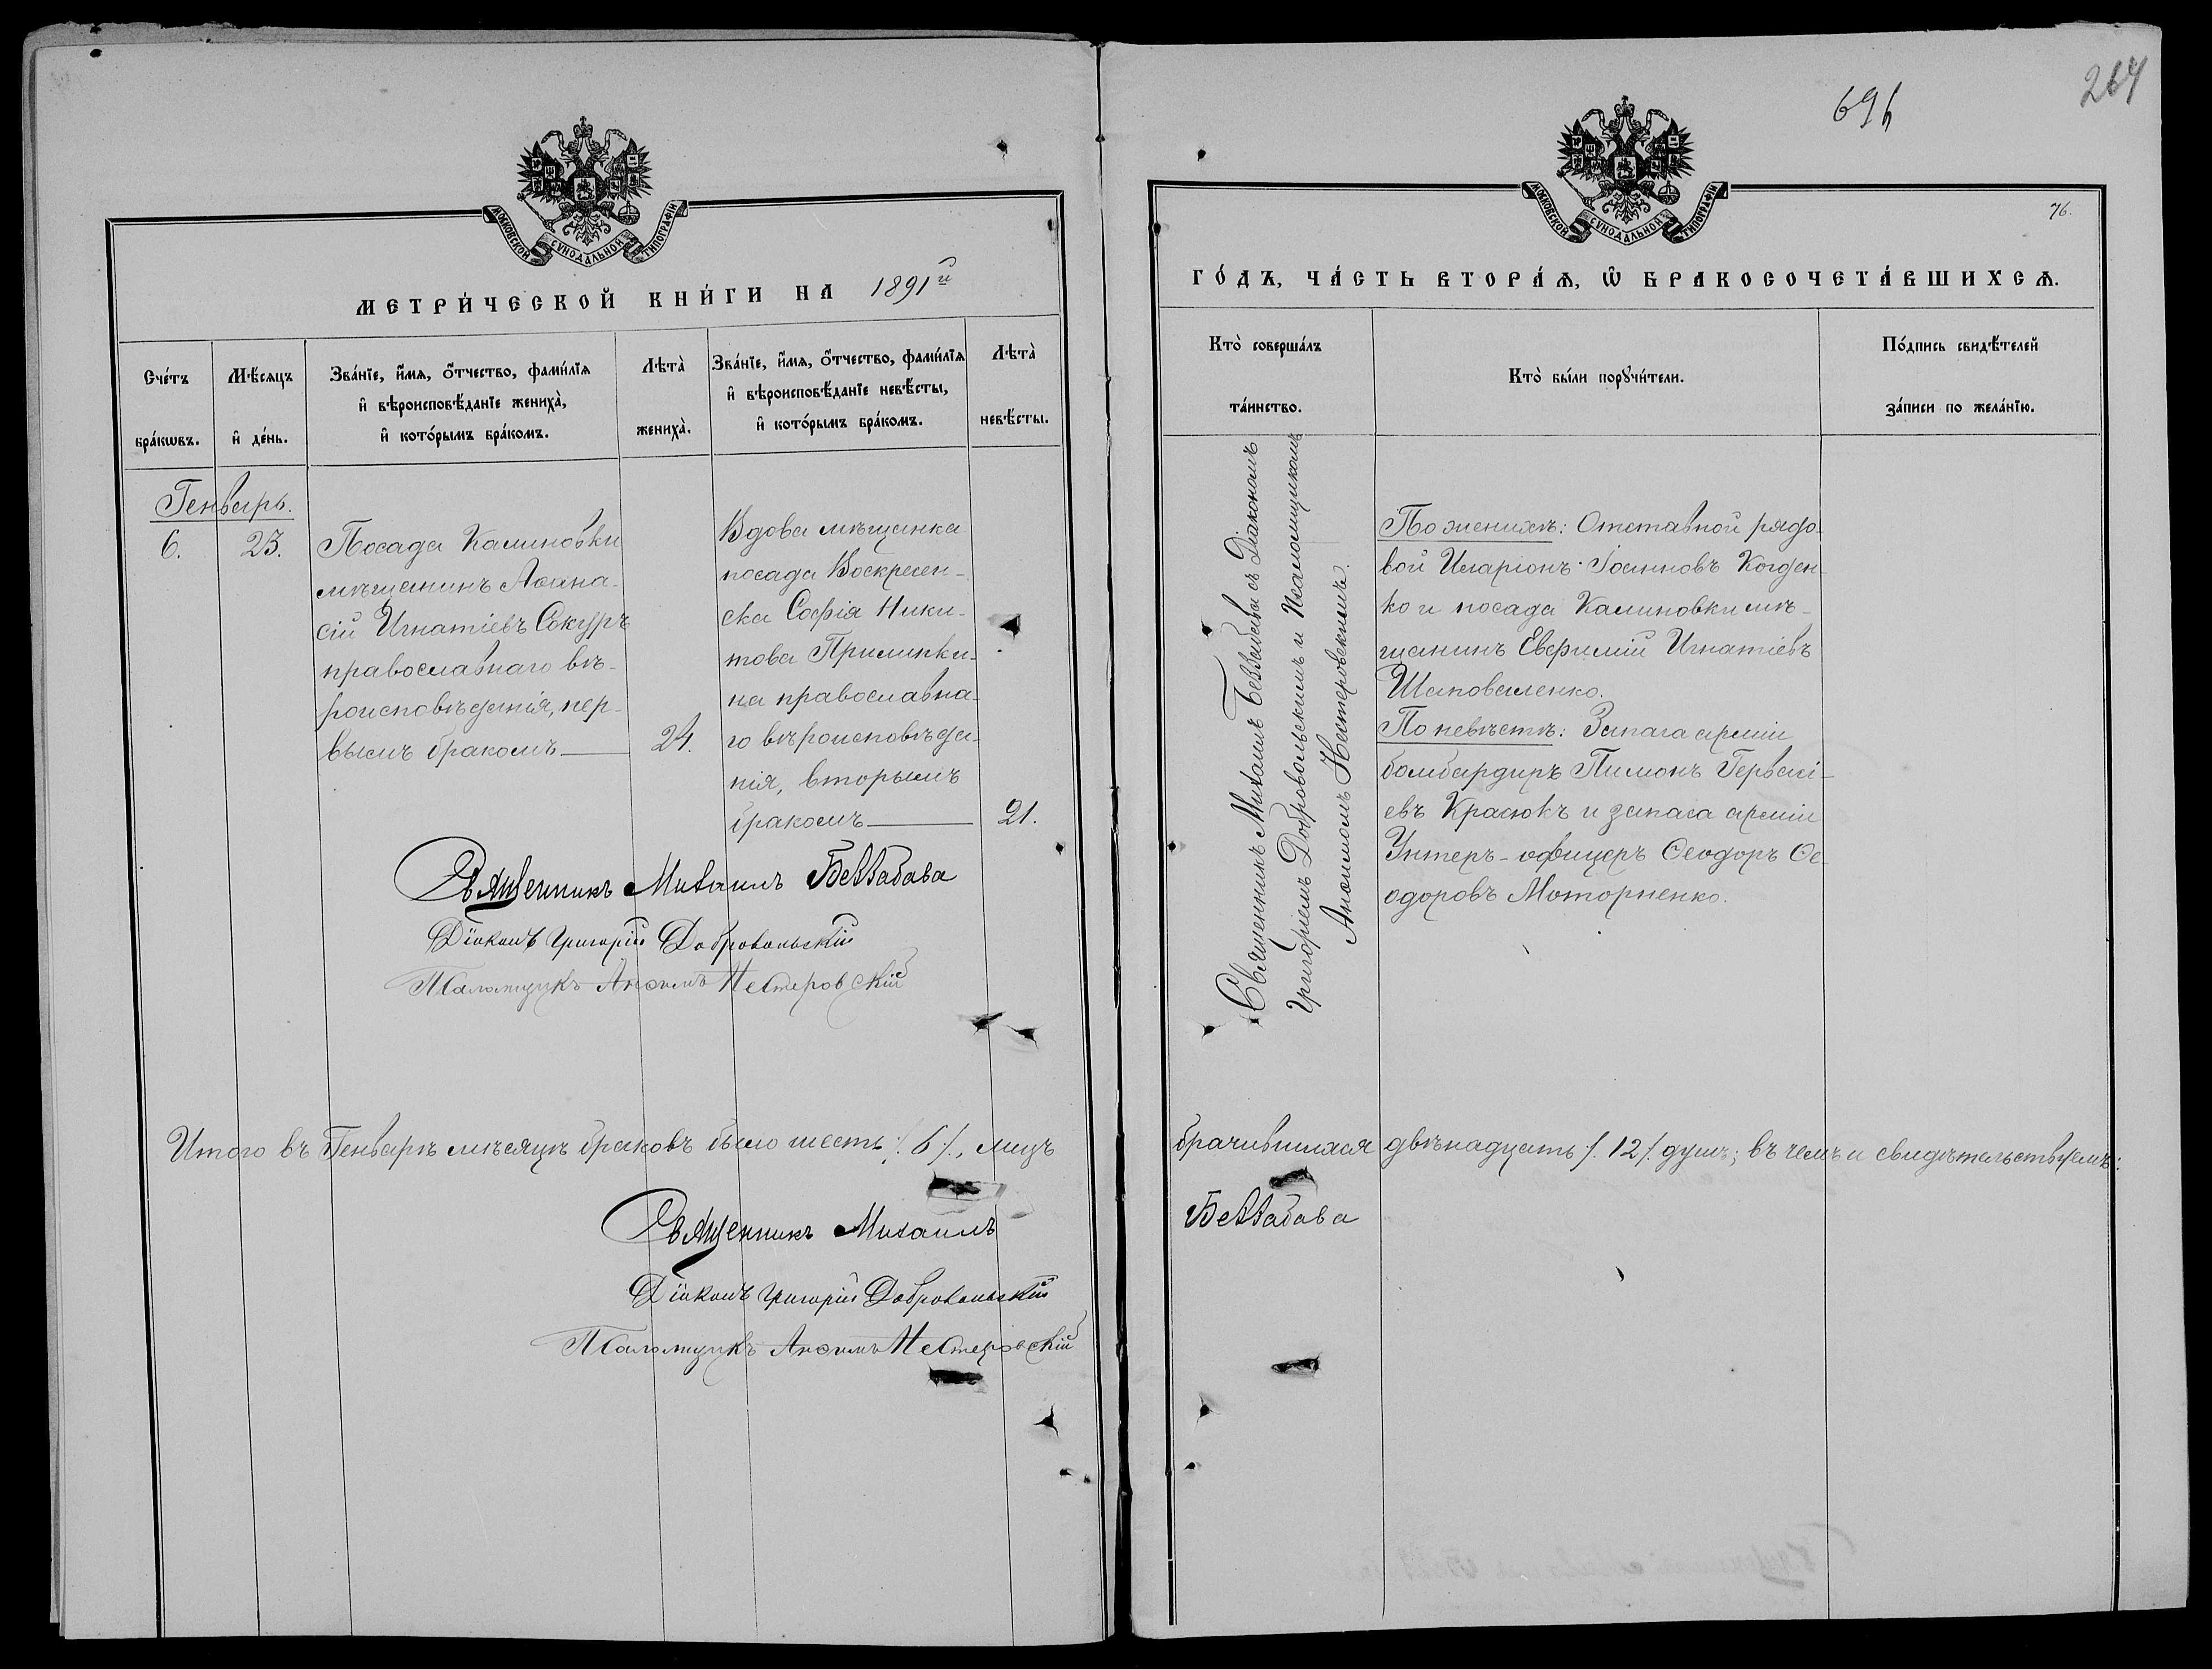 264
696
76.
МОСКОВСКОЙ СѴНОДАЛЬНОЙ ТИПОГРАФІИ
МОСКОВСКОЙ СѴНОДАЛЬНОЙ ТИПОГРАФІИ
МЕТРИ́ЧЕСКОЙ КНИ́ГИ НА 1891й
ГО́ДЪ, ЧА́СТЬ ВТОРА́Ѧ, Ѡ҆ БРАКОСОЧЕТА́ВШИХСѦ.
Сче́тъ бра́кѡвъ.
Мѣ́сяцъ и҆ де́нь.
Зва́нїе, и҆́мѧ, ѻ҆́тчество, фами́лїѧ
и҆ вѣроисповѣ́данїе жениха̀,
и҆ кото́рымъ бра́комъ.
Лѣта̀ жениха̀.
Зва́нїе, и҆́мѧ, ѻ҆́тчество, фами́лїѧ
и҆ вѣроисповѣ́данїе невѣ́сты,
и҆ кото́рымъ бра́комъ.
Лѣта̀ невѣ́сты.
Кто̀ соверша́лъ
та́инство.
Кто̀ бы́ли порꙋчи́тели.
По́дпись свидѣ́телей
за́писи по жела́нїю.
Генварь.
6.
23.
Посада Калиновки
мѣщанинъ Аѳана-
сій Игнатіевъ Сокуръ
православнаго вѣ-
роисповѣданія, пер-
вымъ бракомъ
24.
Вдова мѣщанка
посада Воскресен-
ска Софія Ники-
това Прилипки-
на православна-
го вѣроисповѣда-
нія, вторымъ
бракомъ
21.
Священникъ Михаилъ Беззабава съ Діакономъ
Григоріемъ Добровольскимъ и Псаломщикомъ
Анѳимомъ Нестеровскимъ.
По женихѣ: Отставной рядо-
вой Иларіонъ Іоанновъ Когден-
ко и посада Калиновки мѣ-
щанинъ Евфимій Игнатіевъ
Шаповаленко.
По невѣстѣ: Запаса арміи
бомбардиръ Пимонъ Гервасі-
евъ Красюкъ и запаса арміи
Унтеръ-офицеръ Ѳеодоръ Ѳе-
одоровъ Моторненко.
Священникъ Михаилъ Беззабава
Діаконъ Григорій Добровольскій
Псаломщикъ Анѳимъ Нестеровскій
Итого въ Генварѣ мѣсяцѣ браковъ было шесть /.6/., лицъ
брачившихся двѣнадцать /. 12 /. душъ; въ чемъ и свидѣтельствуемъ:
Священникъ Михаилъ Беззабава
Діаконъ Григорій Добровольскій
Псаломщикъ Анѳимъ Нестеровскій